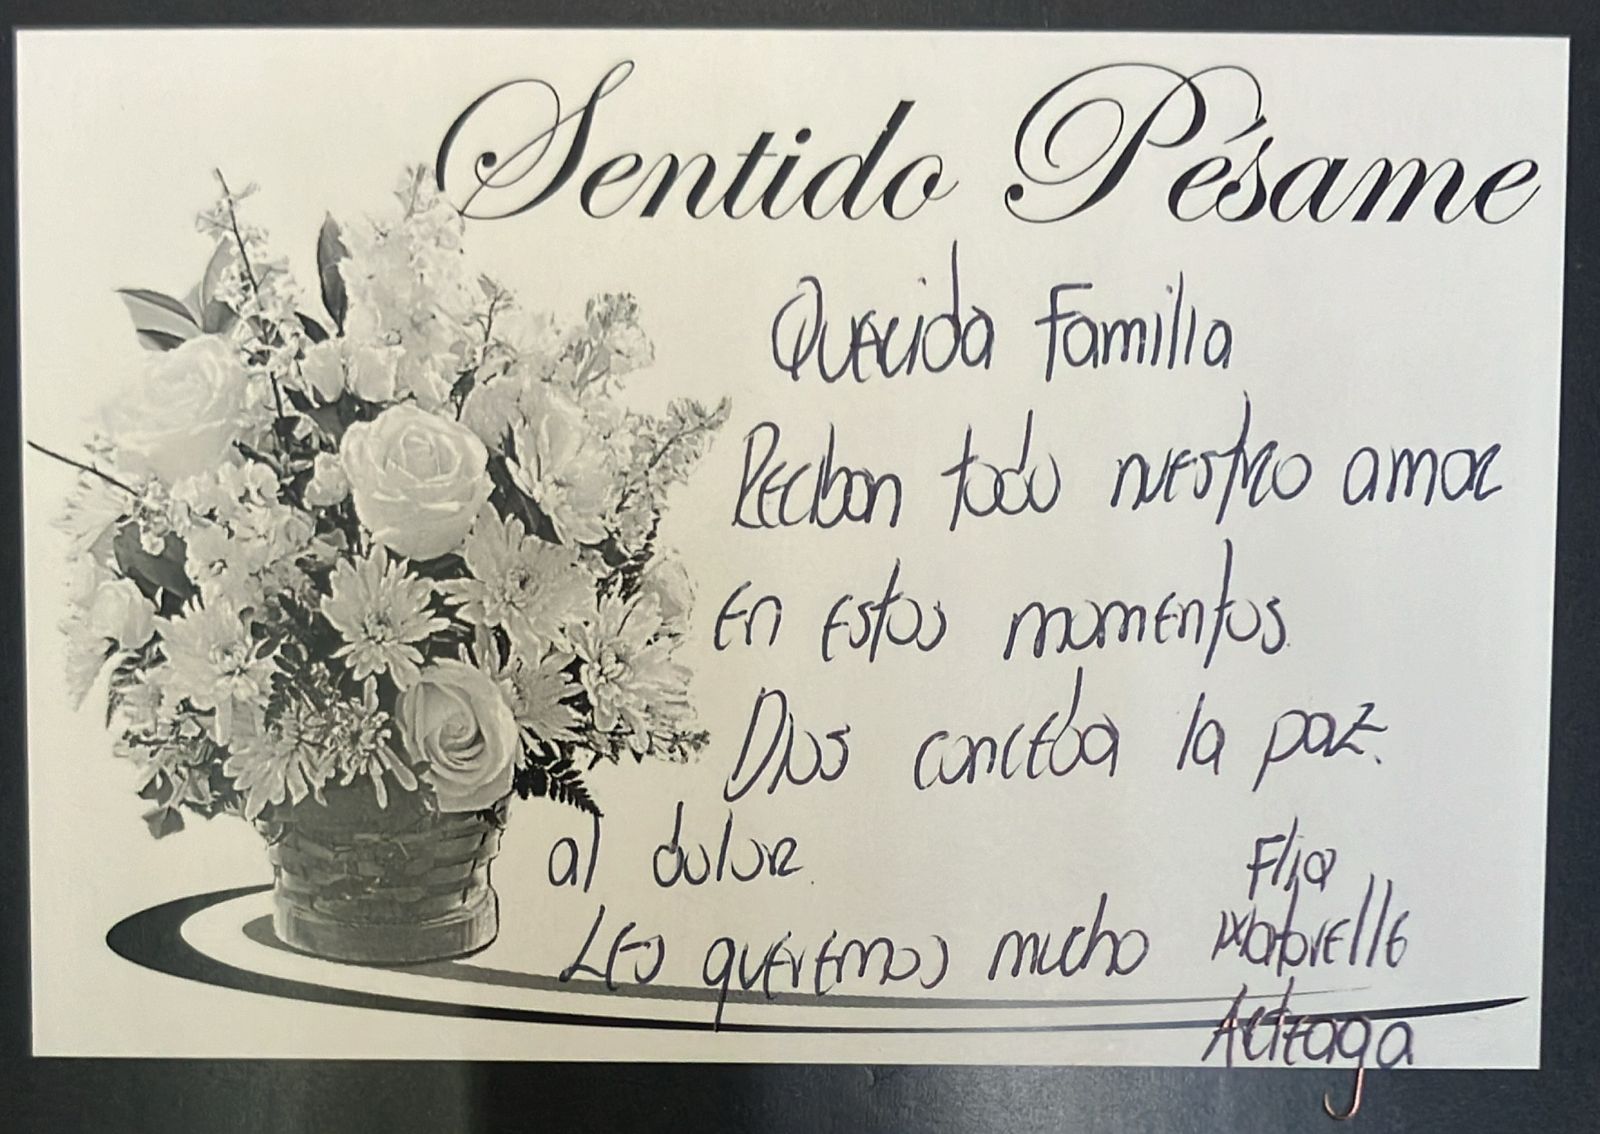 Sentido Pésame
Querida Familia
Reciban todo nuestro amor
en estos momentos.
Dios conceda la paz.
al dolor.
Flia
Les queremos mucho
Arteaga